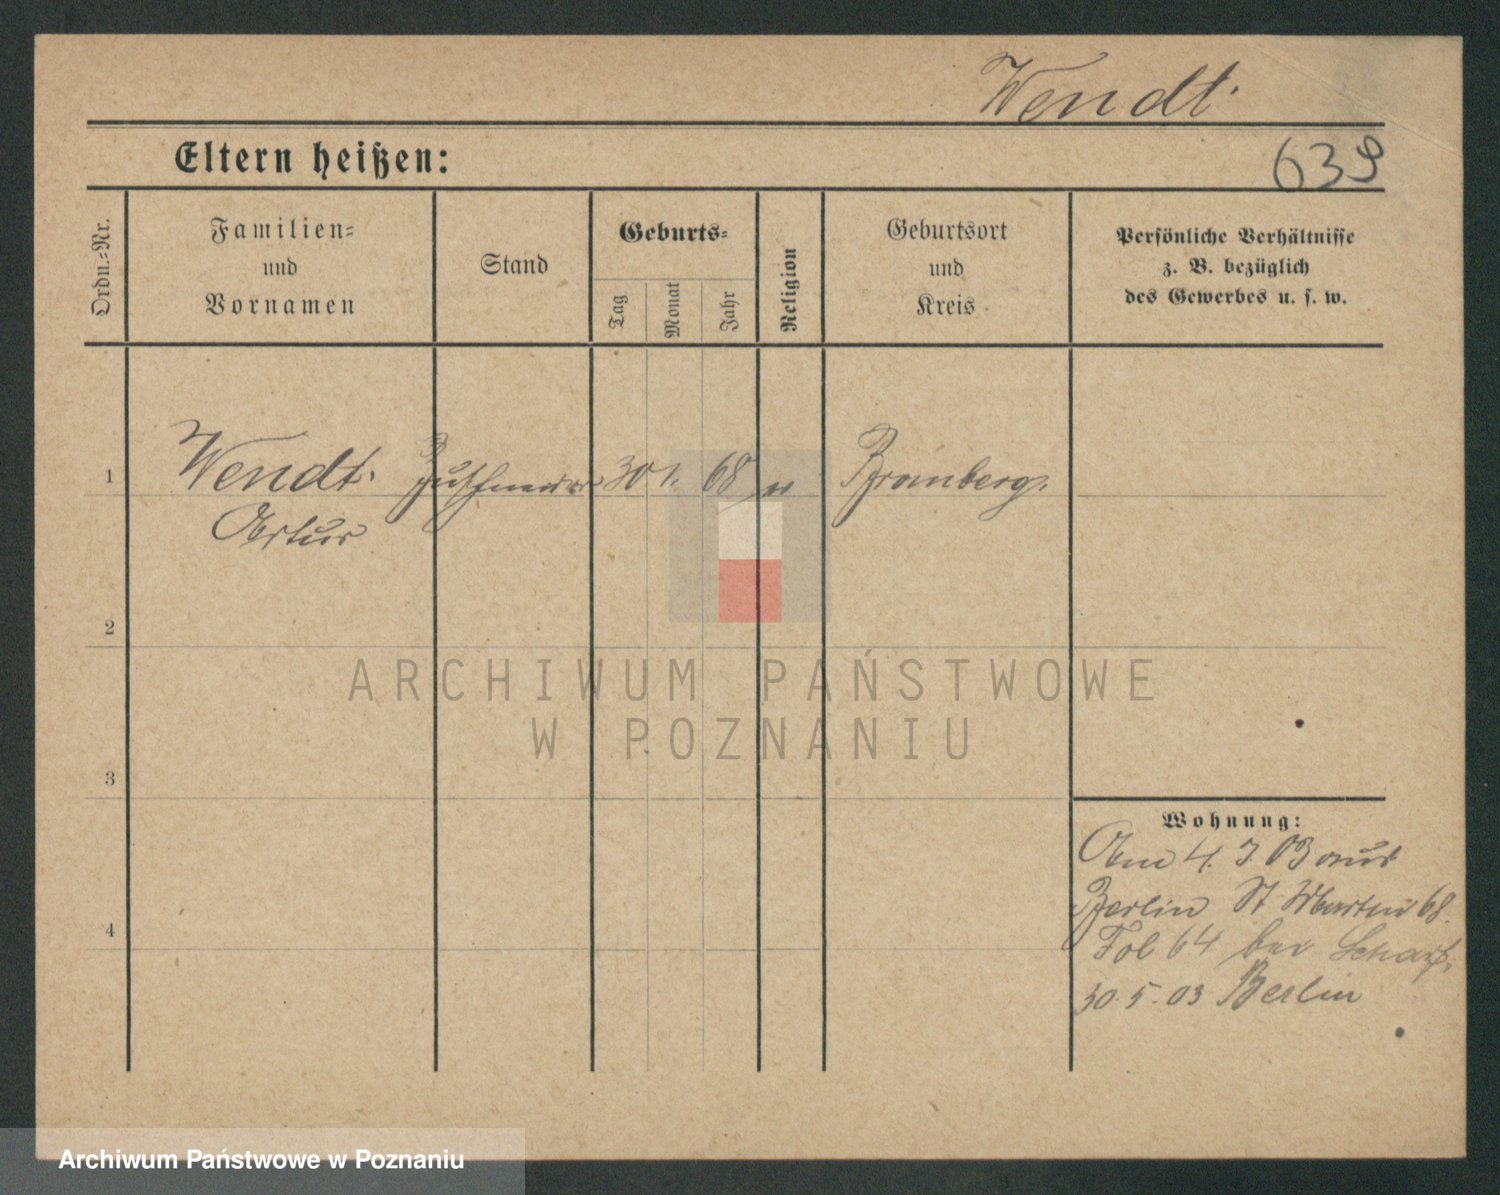 Wendt.
Eltern heißen:
639
Ordn.-Nr.
Familien-
und
Vornamen
Stand
Geburts-
Tag
Monat
Jahr
Religion
Geburtsort
und
Kreis
Persönliche Verhältnisse
z. B. bezüglich
des Gewerbes u. s. w.
1
Wendt.
Artur
30 1. 68
Bromberg.
2
3
4
ARCHIWUM PAŃSTWOWE
W POZNANIU
Wohnung:
Am 4. 3. 03 aus
Berlin St Martin 68.
Fol 64 bei Scharf.
30. 5. 03 Berlin
Archiwum Państwowe w Poznaniu